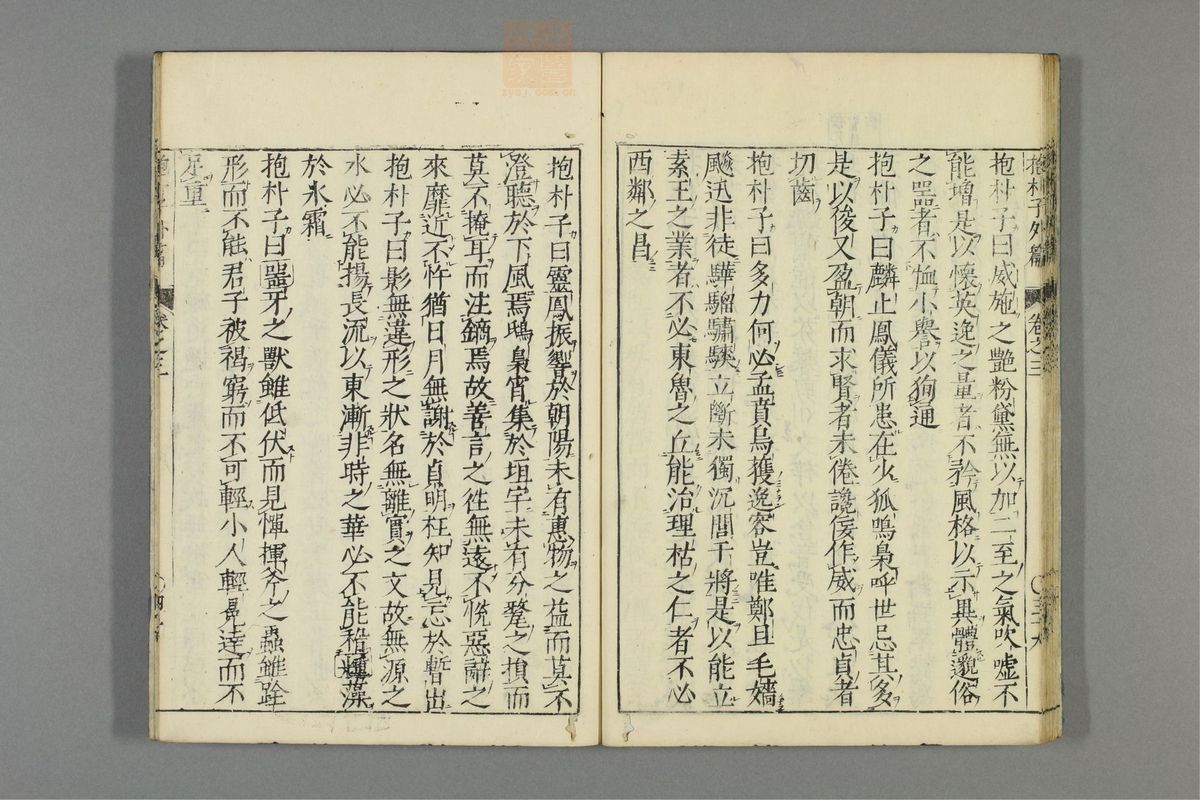 抱朴子外篇 卷之三
抱朴子曰威施之艶粉黛無以加二至之氣吹嘘不
能增是以懷英逸之量者不矜風格以示異體邈俗
之噐者不恤小譽以狥通
抱朴子曰麟止鳳儀所患在少狐鳴梟呼世忌其多
是以俊乂盈朝而求賢者未倦讒佞作威而忠貞者
切齒
抱朴子曰多力何必孟賁烏獲逸容豈唯鄭旦毛嬙
飈迅非徒驊騮驌驦立斷未獨沉閭干將是以能立
素王之業者不必東魯之丘能治理枯之仁者不必
西鄰之昌
抱朴子曰靈鳳振響於朝陽未有惠物之益而莫不
澄聽於下風焉鴟梟宵集於垣宇未有分釐之損而
莫不掩耳而注鏑焉故善言之徃無遠不恱惡辭之
來靡近不忤猶日月無謝於貞明枉知見忘於暫出
抱朴子曰影無違形之狀名無離實之文故無源之
水必不能揚長流以東漸非時之華必不能稽輝藻
於氷霜
抱朴子曰噐牙之獸雖低伏而見憚揮斧之蟲雖跧
形而不能君子被褐窮而不可輕小人輕鼂達而不
足重